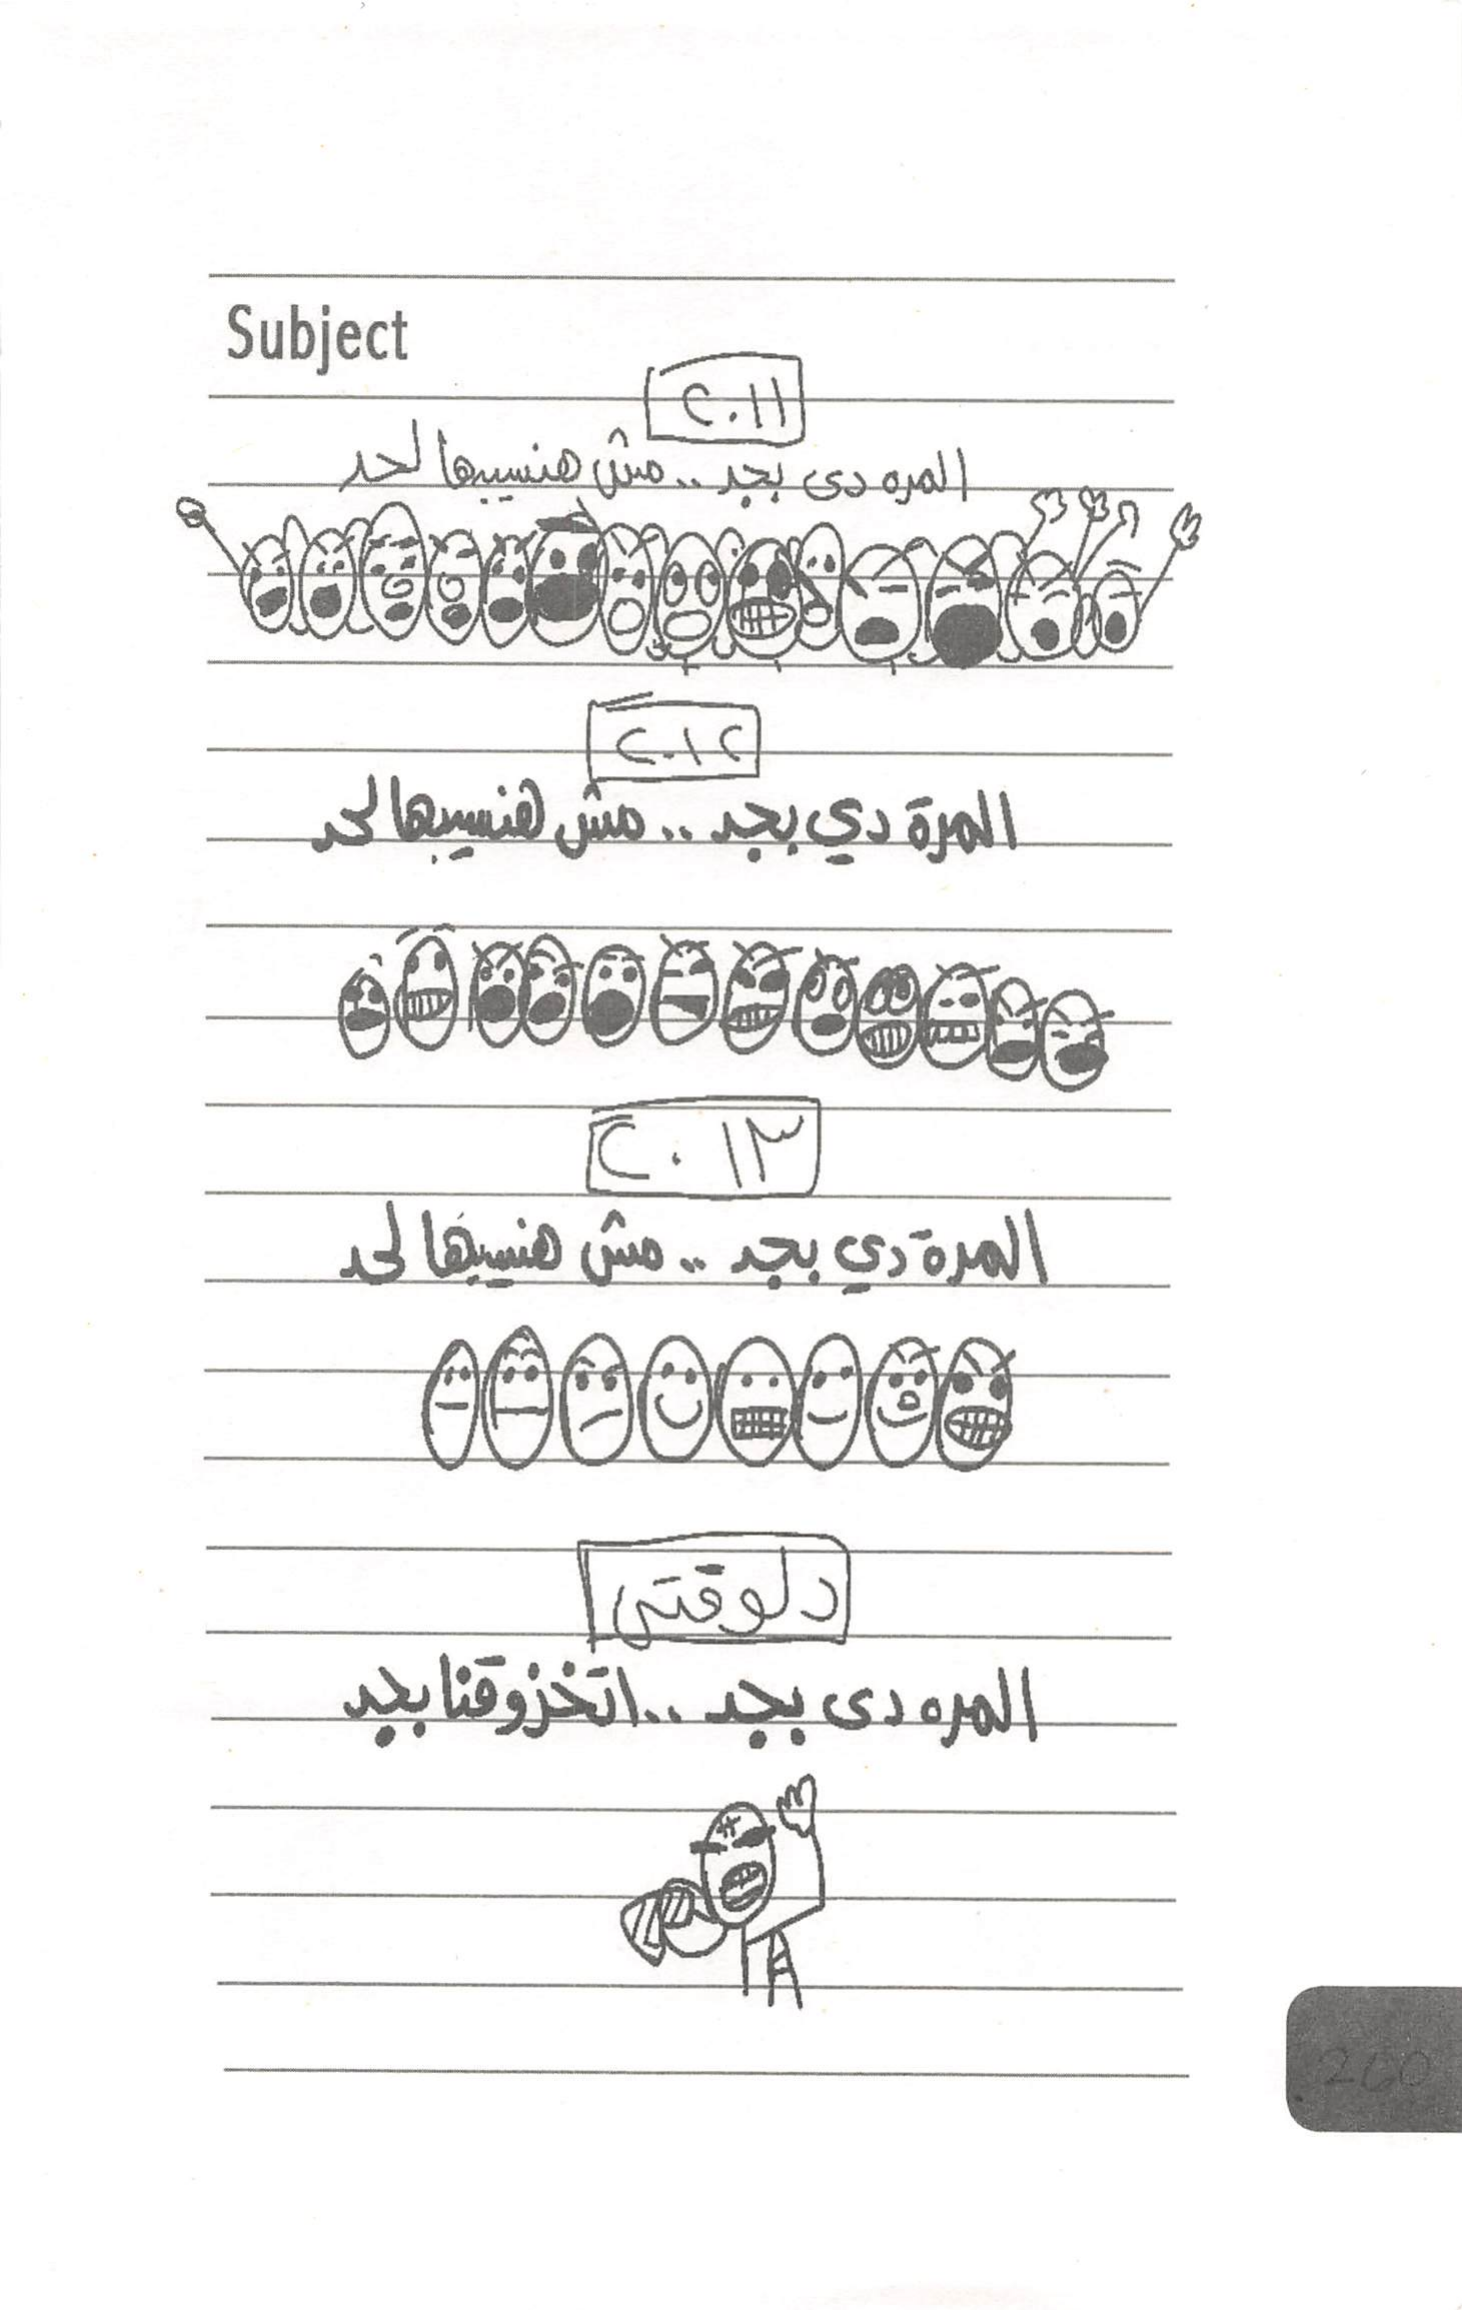 Subject
٢٠١١
المره دى بجد .. مش هنسيبها لحد
٢٠١٢
المرة دي بجد .. مش هنسيبها لحد
٢٠١٣
المرة دي بجد .. مش هنسيبها لحد
دلوقتى
المره دى بجد .. اتخزوقنا بجد
260